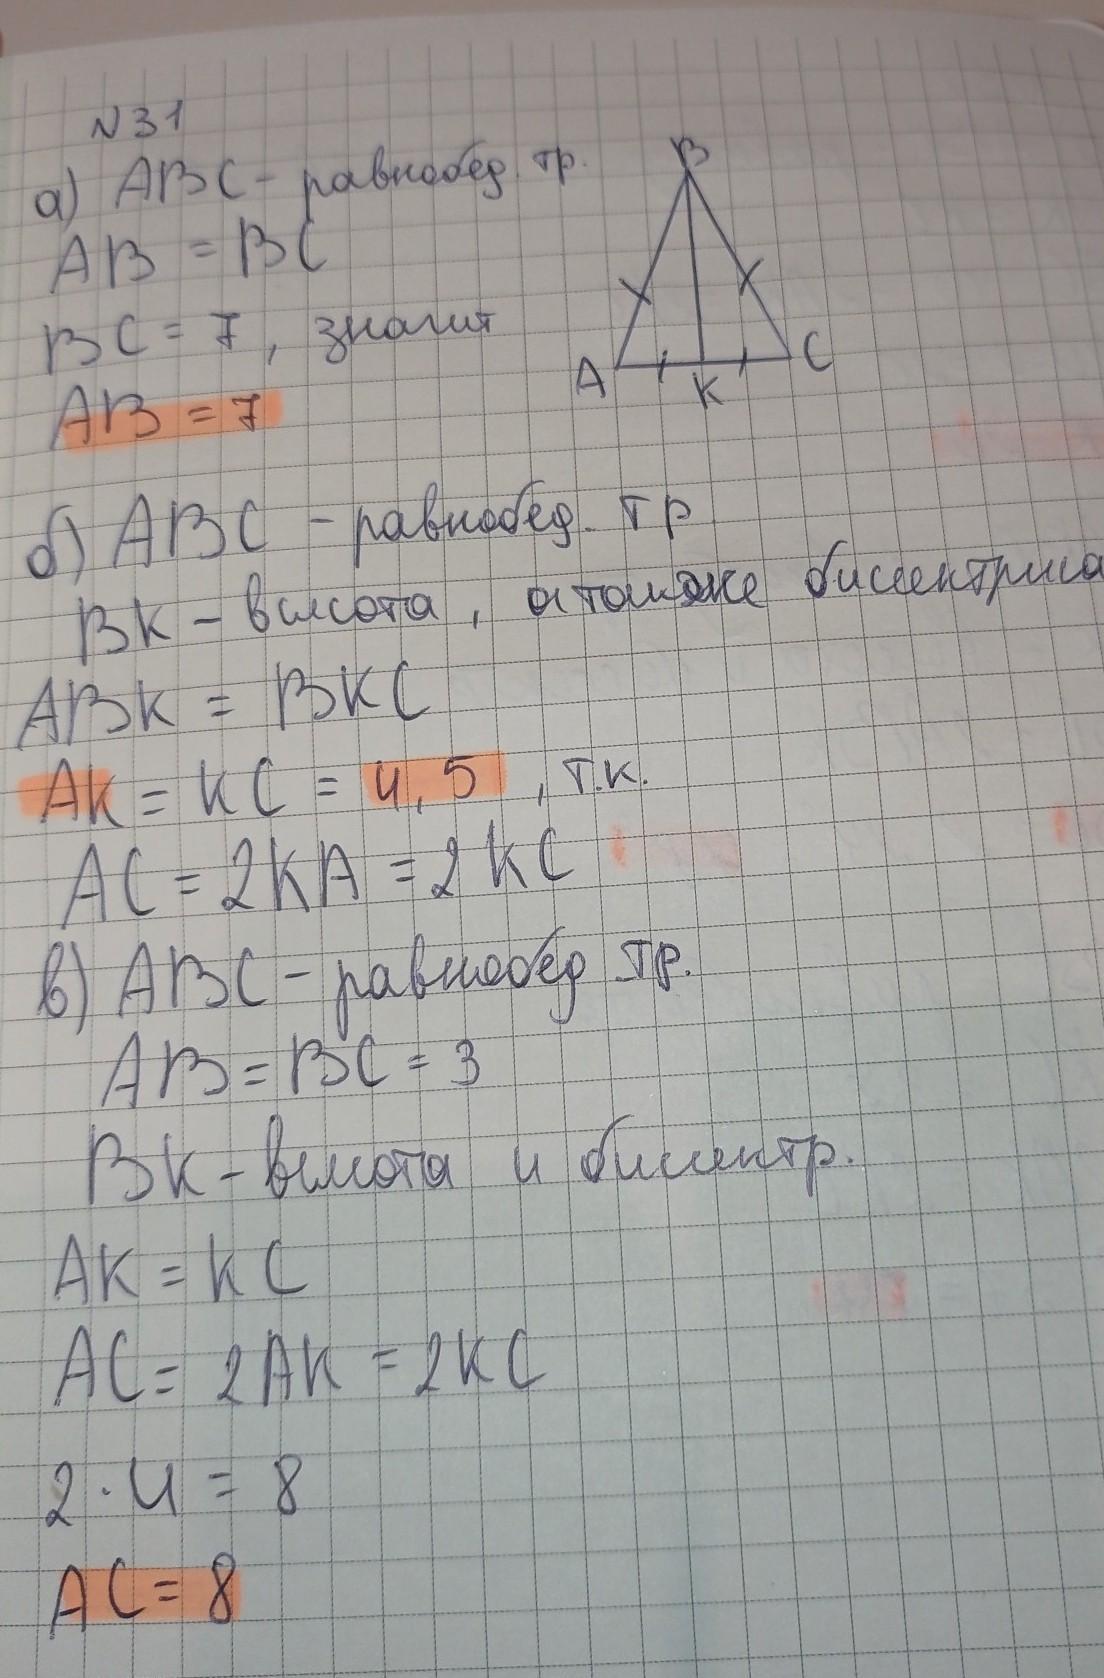 N31
а) ABC - равнобед. тр.
AB = BC
BC = 7, значит
AB = 7
B
A
K
C
б) ABC - равнобед. тр
BK - высота, а также биссектриса
ABK = BKC
AK = KC = 4,5, т.к.
AC = 2KA = 2KC
в) ABC - равнобед тр.
AB = BC = 3
BK - высота и биссектр.
AK = KC
AC = 2AK = 2KC
2 · 4 = 8
AC = 8